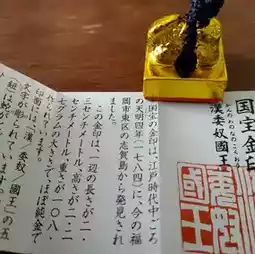 国宝金印
かんのわのなのこくおう
漢委奴國王
国宝の金印は、江戸時代中ごろ
の天明四年(一七八四)に、今の福
岡市東区の志賀島から発見され
ました。
この金印は、一辺の長さが二・
三センチメートル、高さが二・二
センチメートル、重さが一〇八・
七グラムの大きさで、ほぼ純金で
作られています。
印面には、「漢/委奴/國王」の五
文字が彫